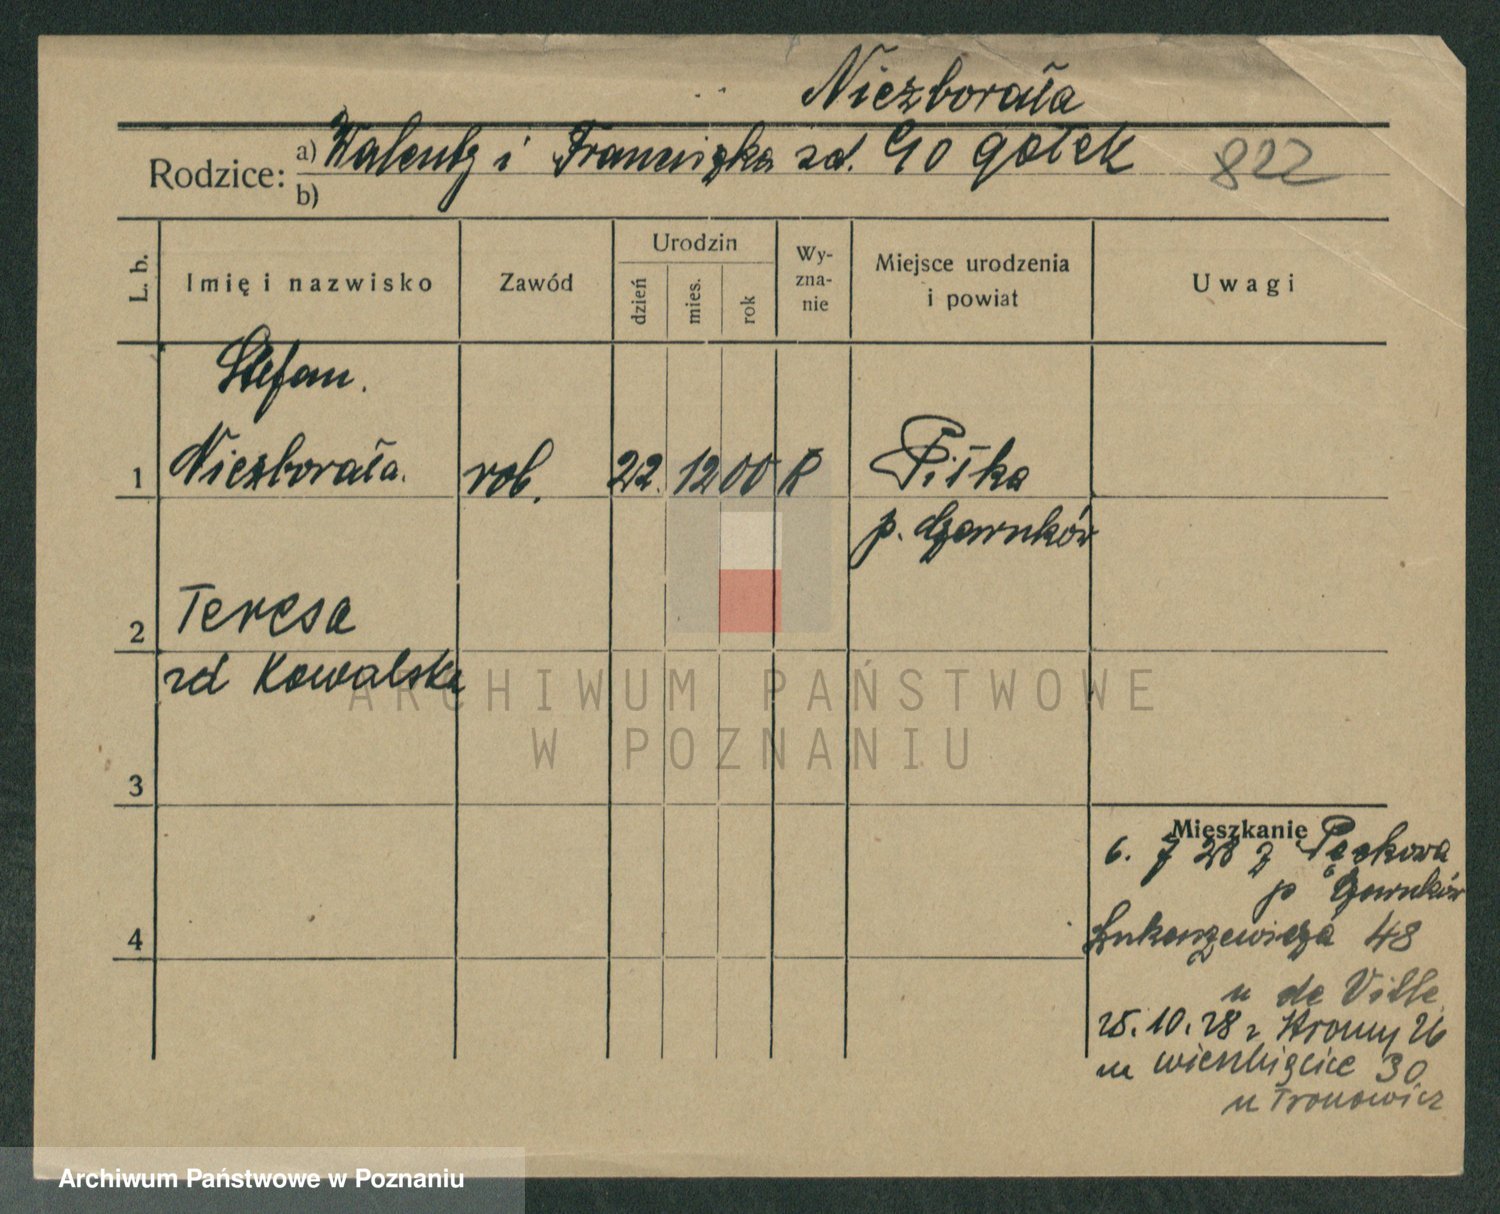 Niezborała
Rodzice: a) Walenty i Franciszka zd. Gogołek 822
b)
L. b. Imię i nazwisko Zawód Urodzin dzień mies. rok Wy-zna-nie Miejsce urodzenia i powiat Uwagi
Stefan.
1 Niezborała. rob. 22. 12 00 R Piłka
p. Czarnków
2 Teresa
zd Kowalska
ARCHIWUM PAŃSTWOWE
W POZNANIU
3
Mieszkanie
6. 7 28 z Pęckowa
p Czarnków
4 Łukaszewicza 48
u de Ville
25. 10. 28 z Kromy 26
m Wierzbięcice 30
u Tronowicz
Archiwum Państwowe w Poznaniu